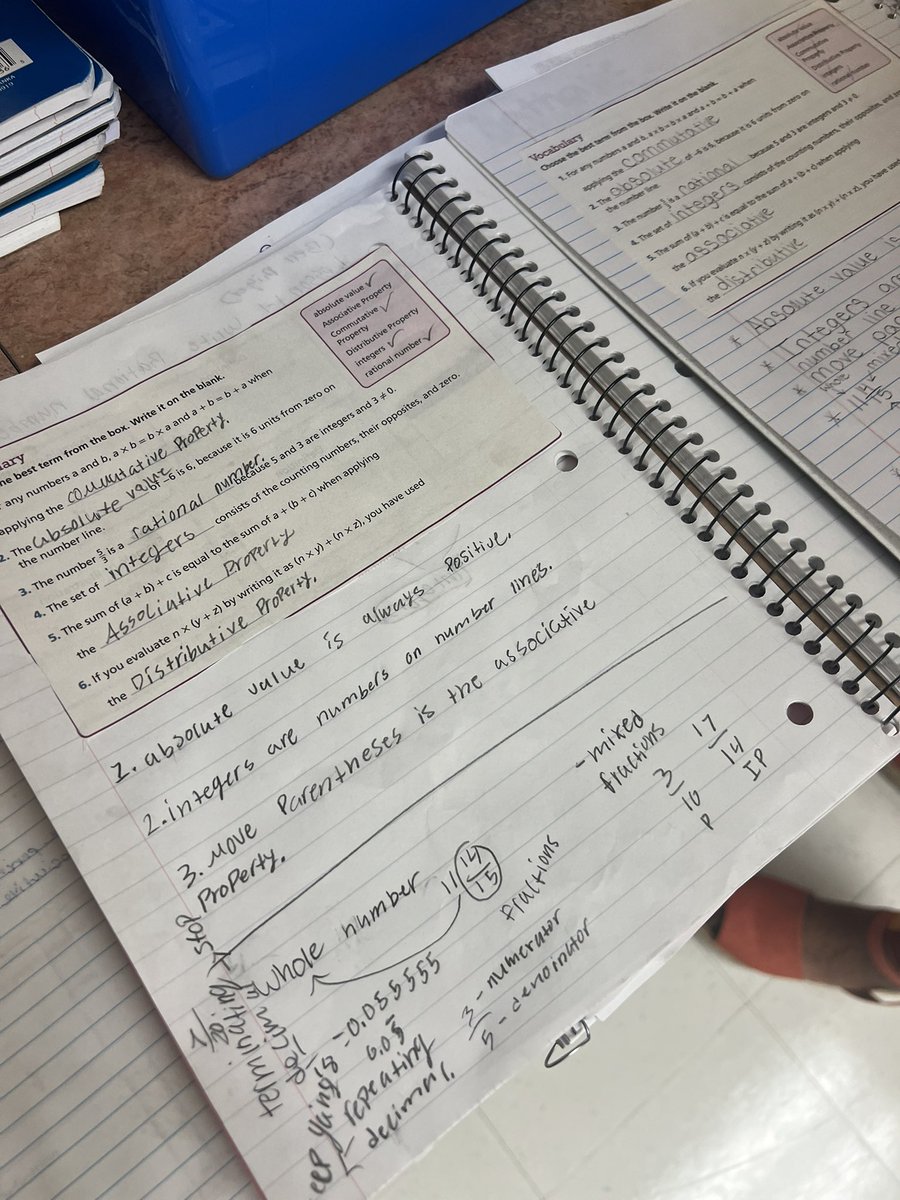 absolute value ✓
Associative Property
Commutative ✓
Property
Distributive Property
integers ✓
rational number ✓
he best term from the box. Write it on the blank.
any numbers a and b, a × b = b × a and a + b = b + a when
applying the commutative Property.
2. The absolute value of −6 is 6, because it is 6 units from zero on
the number line.
3. The number 5/3 is a rational number. because 5 and 3 are integers and 3 ≠ 0.
4. The set of integers consists of the counting numbers, their opposites, and zero.
5. The sum of (a + b) + c is equal to the sum of a + (b + c) when applying
the Associative Property
6. If you evaluate n × (y + z) by writing it as (n × y) + (n × z), you have used
the Distributive Property.
1. absolute value is always positive.
2. integers are numbers on number lines.
3. Move Parentheses is the associative
Property.
whole number 11 14/15
fractions
-mixed
fractions
3/10
P
17/14
IP
3 - numerator
5 - denoinator
terminating → stop
decimal
= 0.055555
0.05
repeating
decimal.
Vocabulary
Choose the best term from the box. Write it on the blank.
1. For any numbers a and b, a × b = b × a and a + b = b + a when
applying the commutative
2. The absolute of −6 is 6, because it is 6 units from zero on
the number line.
3. The number 5/3 is a rational because 5 and 3 are integers and 3 ≠ 0.
4. The set of integers consists of the counting numbers, their opposites, and
5. The sum of (a + b) + c is equal to the sum of a + (b + c) when applying
the associative
6. If you evaluate n × (y + z) by writing it as (n × y) + (n × z), you have used
the distributive
* Absolute value is
* Integers are
number line
* Move